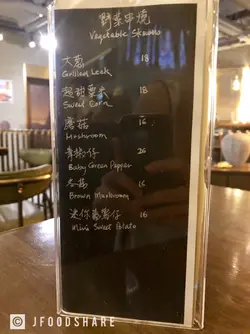 野菜串燒
Vegetable Skewers
大葱 18
Grilled Leek
超甜粟米 18
Sweet Corn
蘑菇 16
Mushroom
青椒仔 26
Baby Green Pepper
冬菇 16
Brown Mushroom
迷你蕃薯仔 16
Mini Sweet Potato
© JFOODSHARE